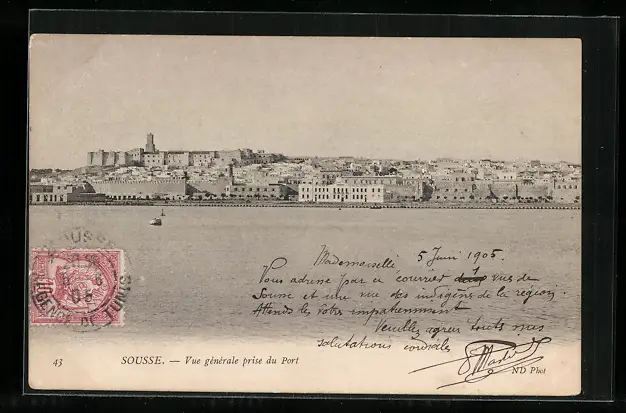 Mademoiselle 5 Juin 1905.
Vous adresse par ce courrier deux vues de
Sousse et une vue des indigènes de la région
Attends les votres impatiemment
Veuillez agréer toutes mes
salutations cordiales
43 SOUSSE. — Vue générale prise du Port
ND Phot